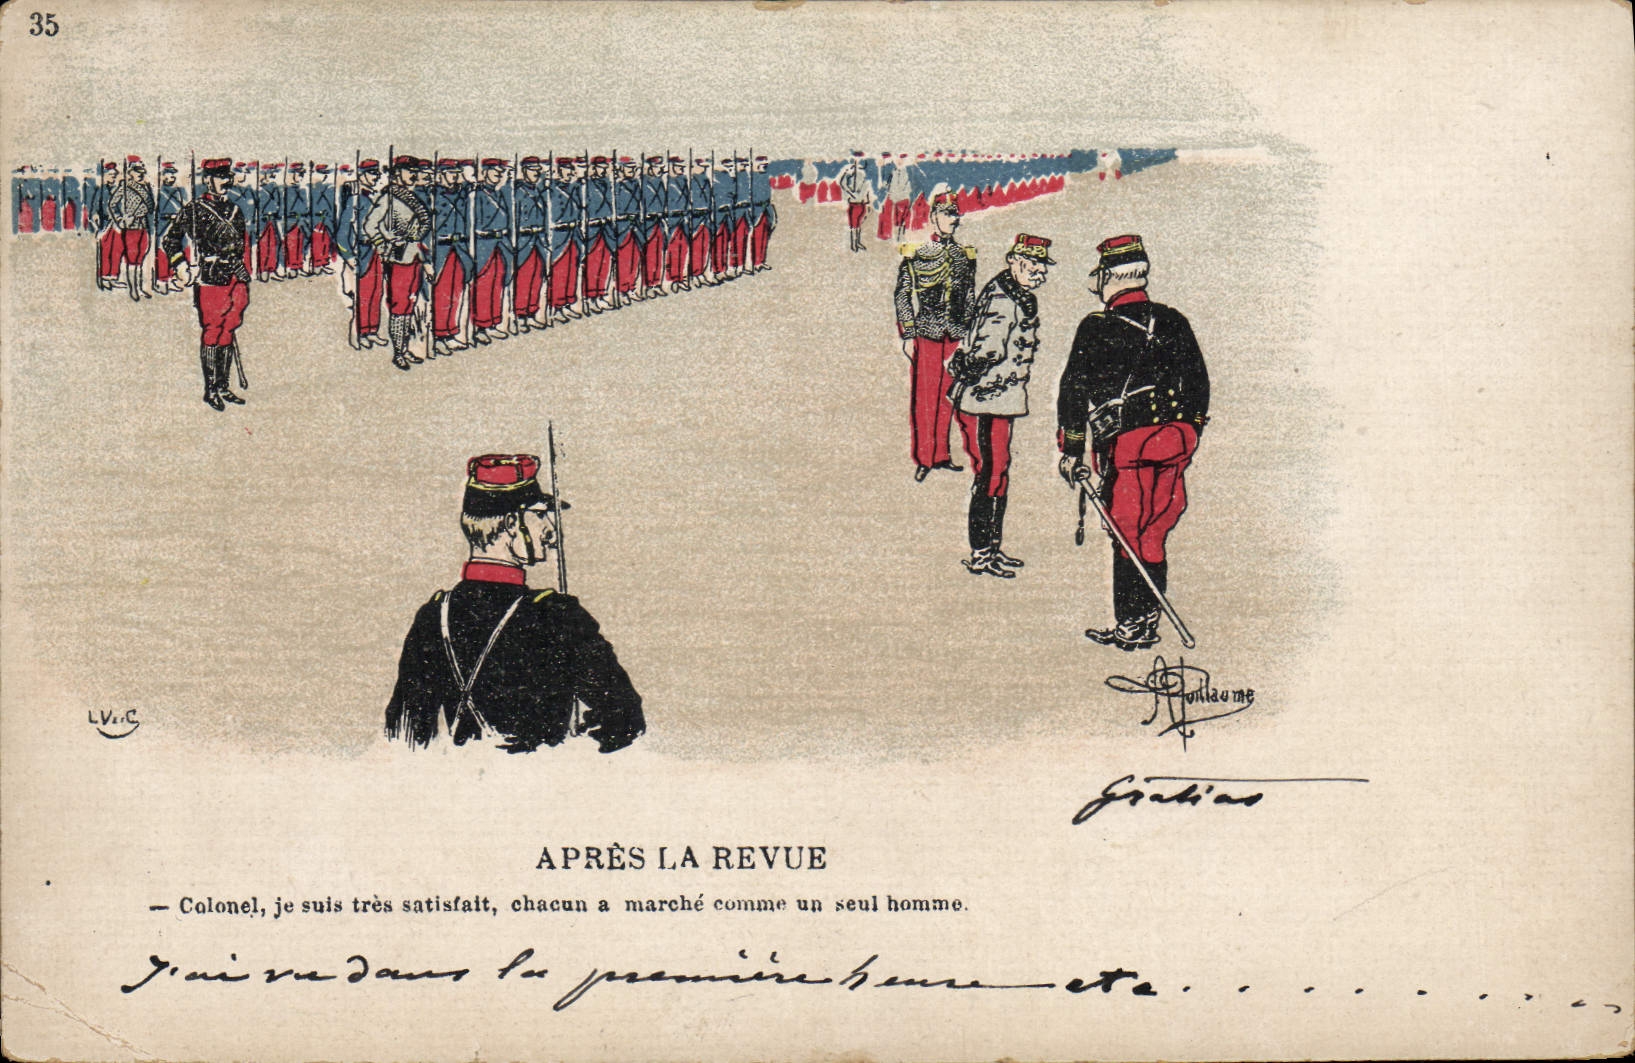 35
L V & C
A Guillaume
Gratias
APRÈS LA REVUE
— Colonel, je suis très satisfait, chacun a marché comme un seul homme.
J'ai vu dans la première heure etc. . . . . . . . . .